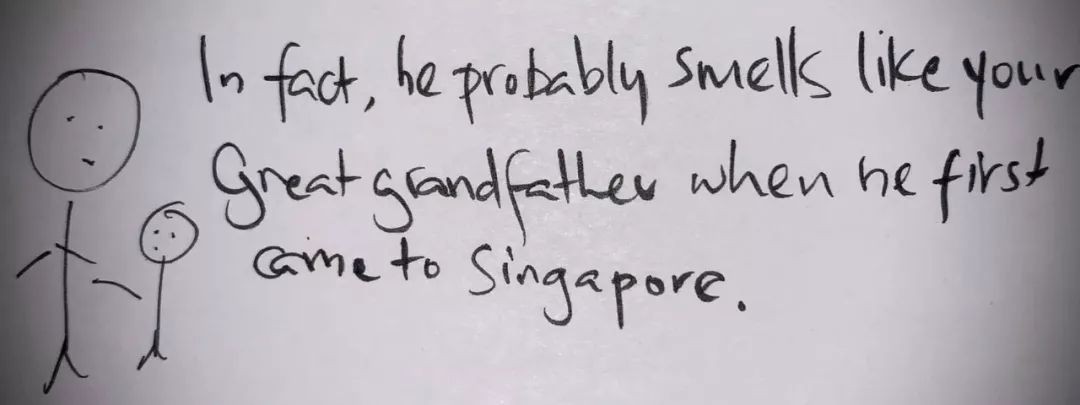 In fact, he probably smells like your
Great grandfather when he first
came to Singapore.